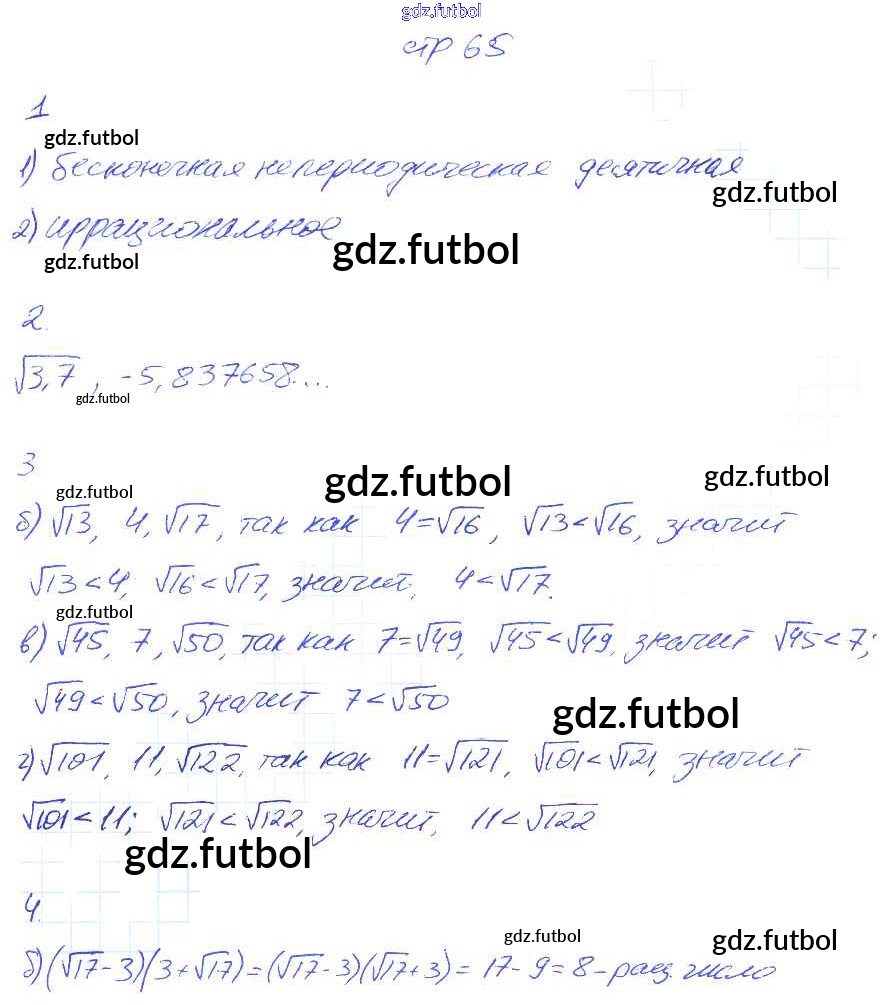 gdz.futbol
стр 65
1
gdz.futbol
1) бесконечная непериодическая десятичная
gdz.futbol
2) иррациональное
gdz.futbol
gdz.futbol
2.
√3,7, -5,837658...
gdz.futbol
3
gdz.futbol
gdz.futbol
gdz.futbol
б) √13, 4, √17, так как 4=√16, √13<√16, значит
√13<4; √16<√17, значит, 4<√17.
gdz.futbol
в) √45, 7, √50, так как 7=√49, √45<√49, значит √45<7;
√49<√50, значит 7<√50
gdz.futbol
г) √101, 11, √122, так как 11=√121, √101<√121, значит
√101<11; √121<√122, значит, 11<√122
gdz.futbol
4.
gdz.futbol
gdz.futbol
б) (√17-3)(3+√17)=(√17-3)(√17+3)=17-9=8-рац. число